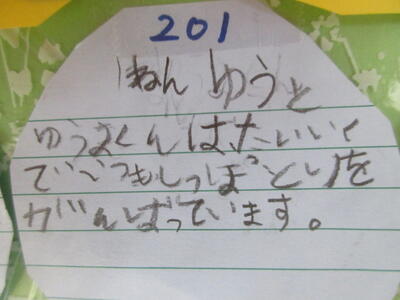 201
1ねん ゆうと
ゆうまくんはたいいく
でいつもしっぽとりを
がんばっています。